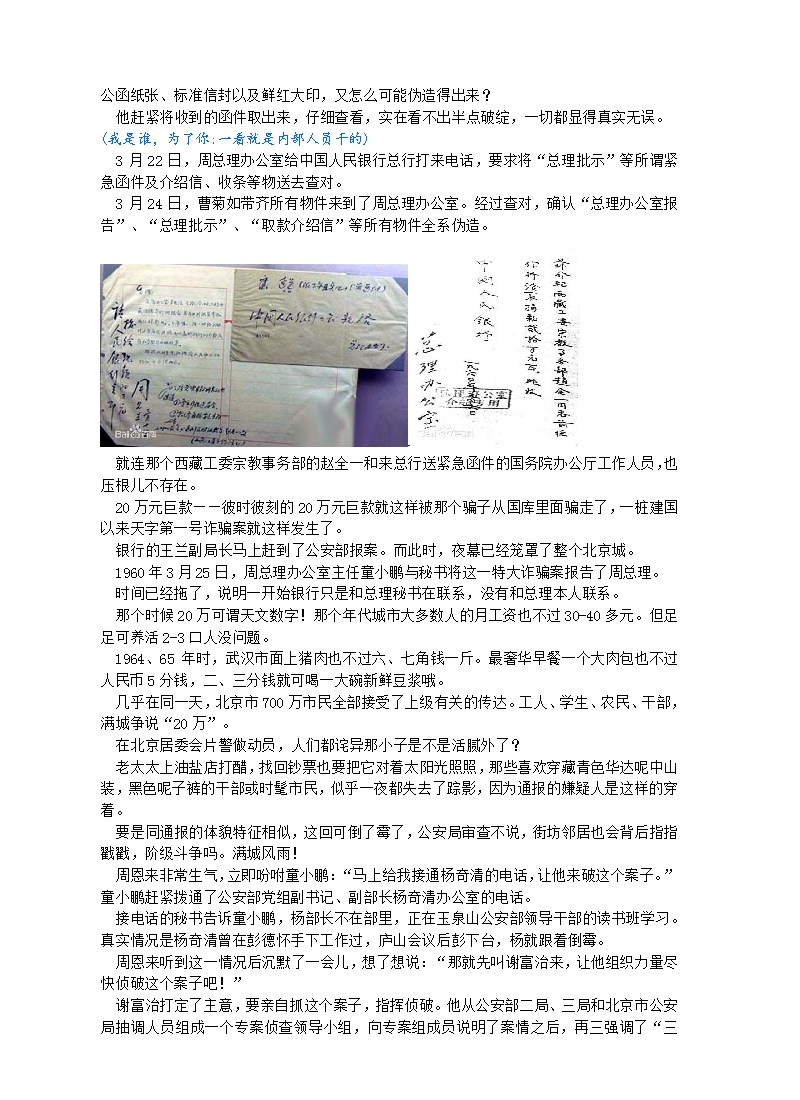 公函纸张、标准信封以及鲜红大印，又怎么可能伪造得出来？
他赶紧将收到的函件取出来，仔细查看，实在看不出半点破绽，一切都显得真实无误。
(我是谁，为了你:一看就是内部人员干的)
3 月 22 日，周总理办公室给中国人民银行总行打来电话，要求将“总理批示”等所谓紧
急函件及介绍信、收条等物送去查对。
3 月 24 日，曹菊如带齐所有物件来到了周总理办公室。经过查对，确认“总理办公室报
告”、“总理批示”、“取款介绍信”等所有物件全系伪造。
中国人民银行
总理办公室
Bai
百科
就连那个西藏工委宗教事务部的赵全一和来总行送紧急函件的国务院办公厅工作人员，也
压根儿不存在。
20 万元巨款——彼时彼刻的 20 万元巨款就这样被那个骗子从国库里面骗走了，一桩建国
以来天字第一号诈骗案就这样发生了。
银行的王兰副局长马上赶到了公安部报案。而此时，夜幕已经笼罩了整个北京城。
1960 年 3 月 25 日，周总理办公室主任童小鹏与秘书将这一特大诈骗案报告了周总理。
时间已经拖了，说明一开始银行只是和总理秘书在联系，没有和总理本人联系。
那个时候 20 万可谓天文数字！那个年代城市大多数人的月工资也不过 30-40 多元。但足
足可养活 2-3 口人没问题。
1964、65 年时，武汉市面上猪肉也不过六、七角钱一斤。最奢华早餐一个大肉包也不过
人民币 5 分钱，二、三分钱就可喝一大碗新鲜豆浆哦。
几乎在同一天，北京市 700 万市民全部接受了上级有关的传达。工人、学生、农民、干部，
满城争说“20 万”。
在北京居委会片警做动员，人们都诧异那小子是不是活腻外了？
老太太上油盐店打醋，找回钞票也要把它对着太阳光照照，那些喜欢穿藏青色华达呢中山
装，黑色呢子裤的干部或时髦市民，似乎一夜都失去了踪影，因为通报的嫌疑人是这样的穿
着。
要是同通报的体貌特征相似，这回可倒了霉了，公安局审查不说，街坊邻居也会背后指指
戳戳，阶级斗争吗。满城风雨！
周恩来非常生气，立即吩咐童小鹏：“马上给我接通杨奇清的电话，让他来破这个案子。”
童小鹏赶紧拨通了公安部党组副书记、副部长杨奇清办公室的电话。
接电话的秘书告诉童小鹏，杨部长不在部里，正在玉泉山公安部领导干部的读书班学习。
真实情况是杨奇清曾在彭德怀手下工作过，庐山会议后彭下台，杨就跟着倒霉。
周恩来听到这一情况后沉默了一会儿，想了想说：“那就先叫谢富治来，让他组织力量尽
快侦破这个案子吧！”
谢富治打定了主意，要亲自抓这个案子，指挥侦破。他从公安部二局、三局和北京市公安
局抽调人员组成一个专案侦查领导小组，向专案组成员说明了案情之后，再三强调了“三